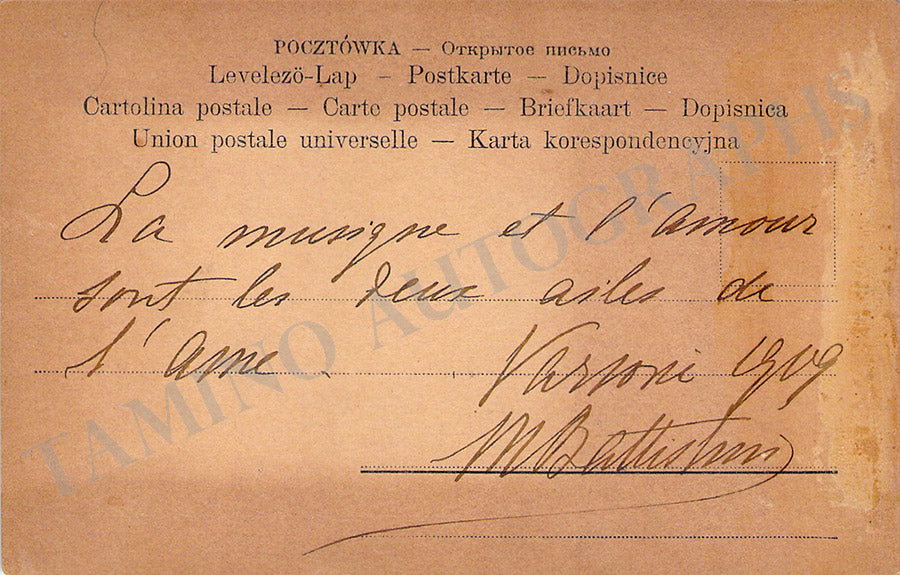 POCZTÓWKA — Открытое письмо
Levelezö-Lap – Postkarte — Dopisnice
Cartolina postale — Carte postale — Briefkaart — Dopisnica
Union postale universelle — Karta korespondencyjna
La musique et l'amour
sont les deux ailes de
l'ame.
Varsovie 1909
MBattistini
TAMINO AUTOGRAPHS